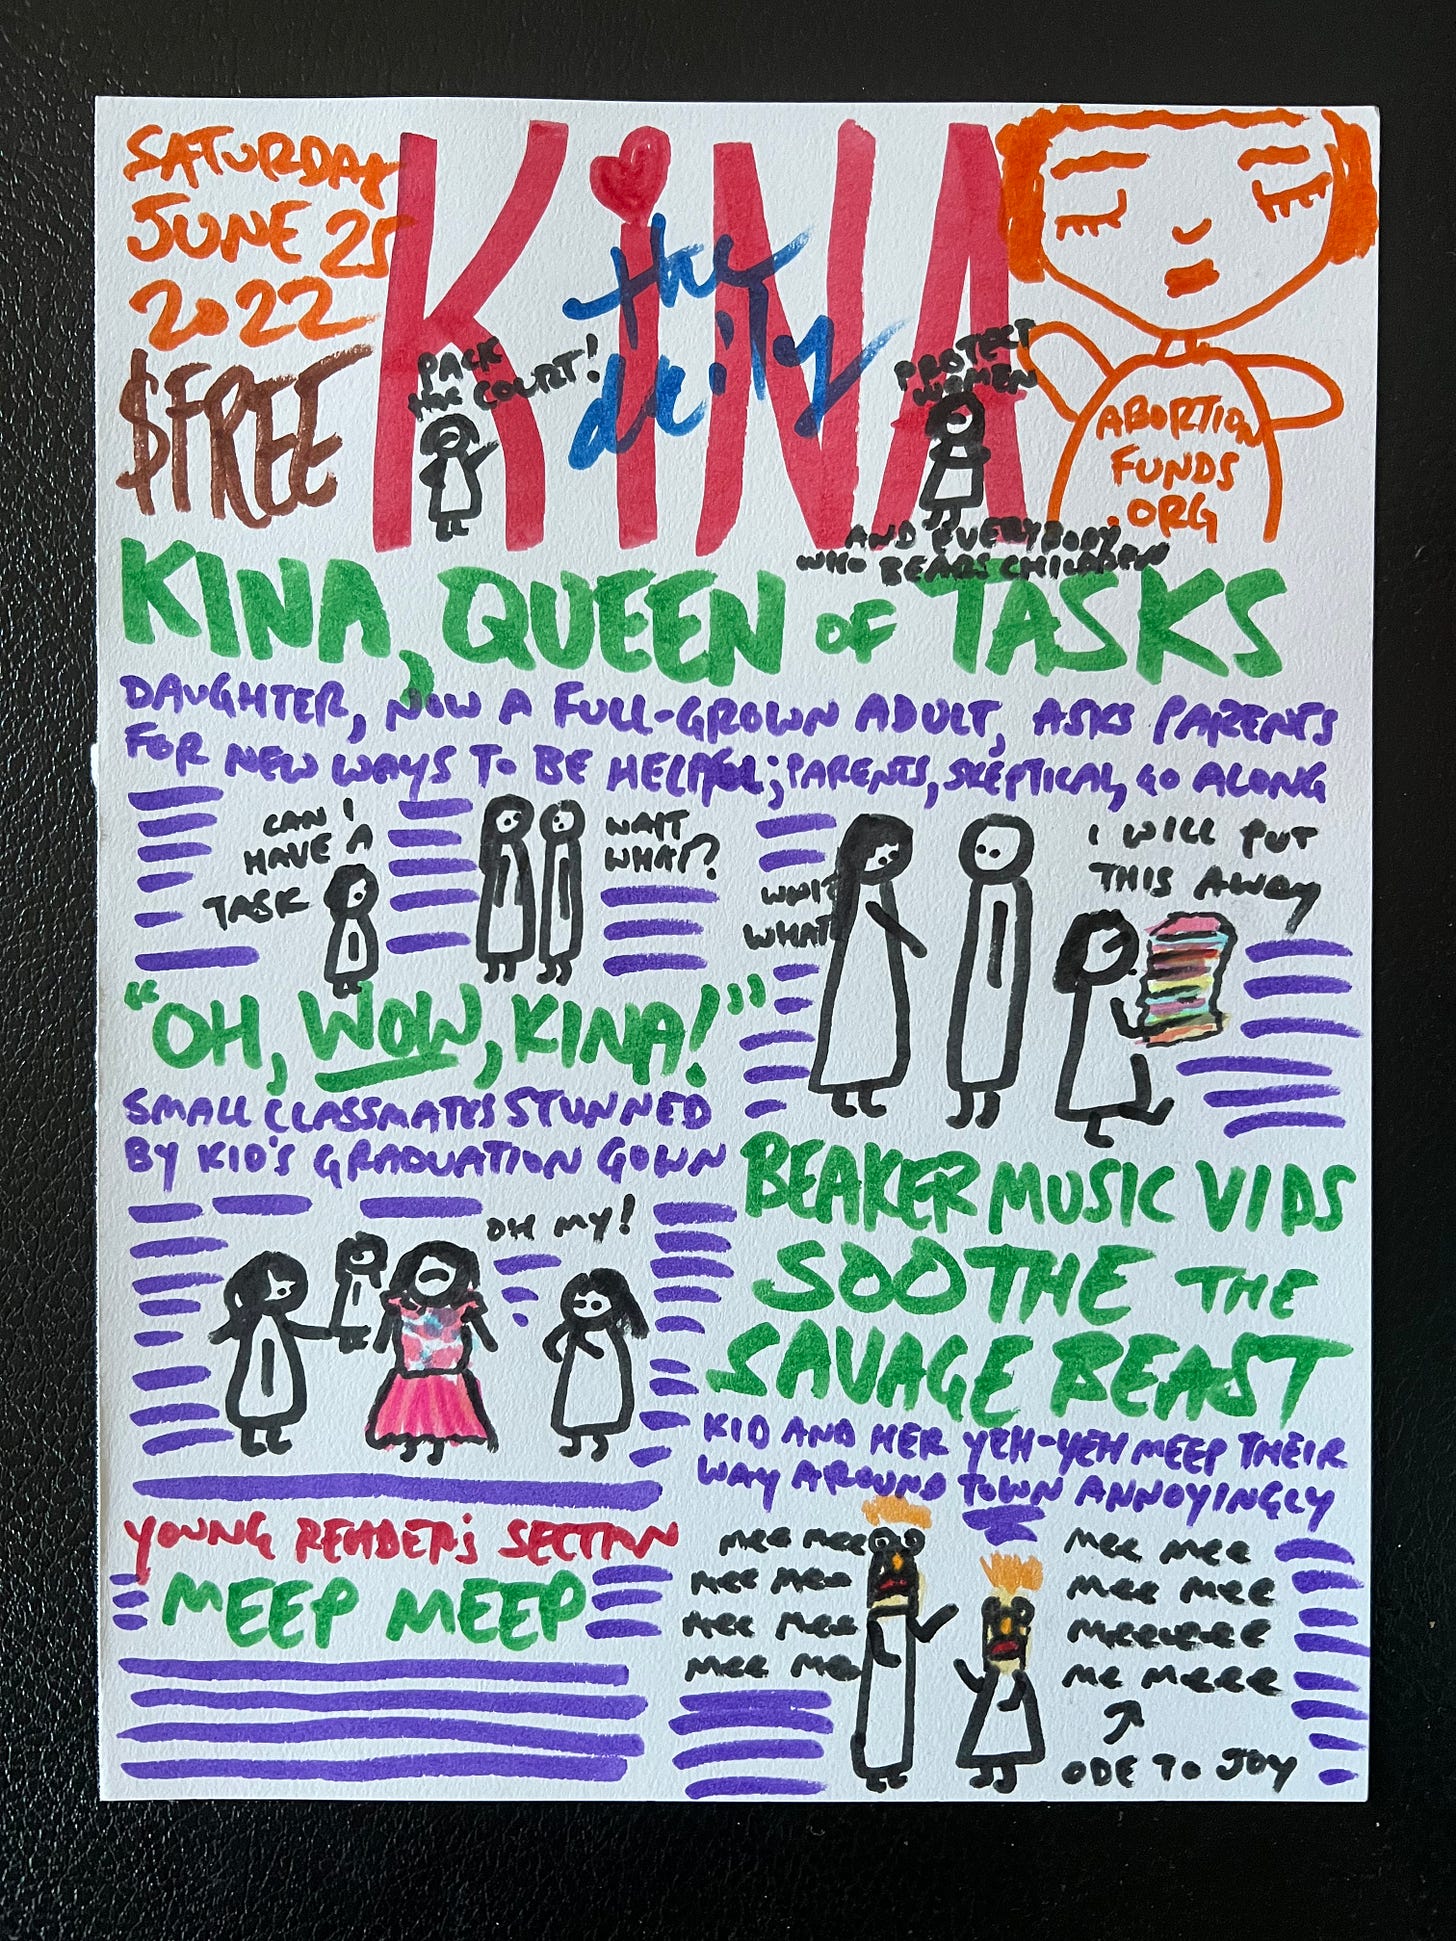 SATURDAY
JUNE 25
2022
$FREE
KINA
the
deity
PACK
the COURT!
PROTECT
WOMEN
AND EVERYBODY
WHO BEARS CHILDREN
ABORTION
FUNDS
.ORG
KINA, QUEEN OF TASKS
DAUGHTER, NOW A FULL-GROWN ADULT, ASKS PARENTS
FOR NEW WAYS TO BE HELPFUL; PARENTS, SKEPTICAL, GO ALONG
CAN I
HAVE A
TASK
WAIT
WHAT?
WAIT
WHAT
I WILL PUT
THIS AWAY
"OH, WOW, KINA!"
SMALL CLASSMATES STUNNED
BY KID'S GRADUATION GOWN
OH MY!
YOUNG READER'S SECTION
MEEP MEEP
BEAKER MUSIC VIDS
SOOTHE THE
SAVAGE BEAST
KID AND HER YEH-YEH MEEP THEIR
WAY AROUND TOWN ANNOYINGLY
MEE MEE
MEE MEE
MEE MEE
MEE ME
MEE MEE
MEE MEE
MEEEEEEE
ME MEEE
ODE TO JOY